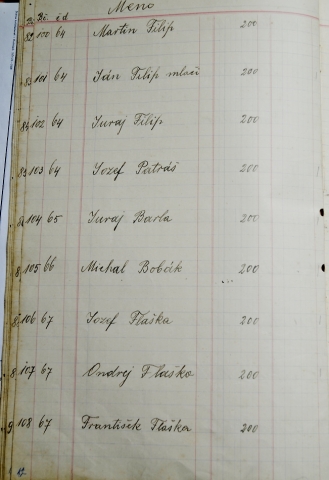 Meno
č. d
82 100 64 Martin Filip 200
83 101 64 Ján Filip mladší 200
84 102 64 Juraj Filip 200
85 103 64 Jozef Patráš 200
104 65 Juraj Barla 200
105 66 Michal Bobák 200
106 67 Jozef Flaška 200
107 67 Ondrej Flaško 200
108 67 František Flaška 200